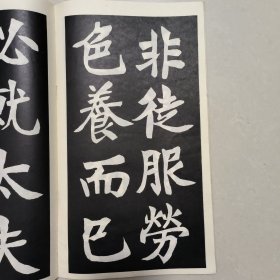 非徒服勞
色養而已
必就太夫